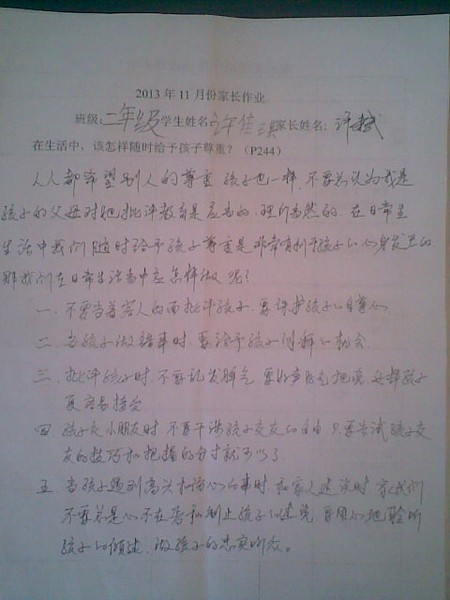 2013 年 11 月份家长作业
班级:二年级学生姓名:许佳 家长姓名:许斌
在生活中，该怎样随时给予孩子尊重？（P244）
人人都希望别人的尊重,孩子也一样,不要认为我是
孩子的父母对他批评教育是应当的,理所当然的,在日常生
生活中我们随时给予孩子尊重是非常有利于孩子的心身发展的
那我们在日常生活当中应怎样做呢?
一.不要当着客人的面批评孩子,要保护孩子的自尊心
二.当孩子做错事时,要给予孩子解释的机会
三.批评孩子时,不要乱发脾气,要,这样孩子
更容易接受
四 孩子交小朋友时,不要干涉孩子交友的自由,只要告诉孩子交
友的技巧和把握的分寸就可以了
五 当孩子遇到高兴和伤心的事时 和家人述说时,家长们
不要若是心不在焉和制止孩子的述说,要用心地聆听
孩子的倾述,做孩子的忠实听众。